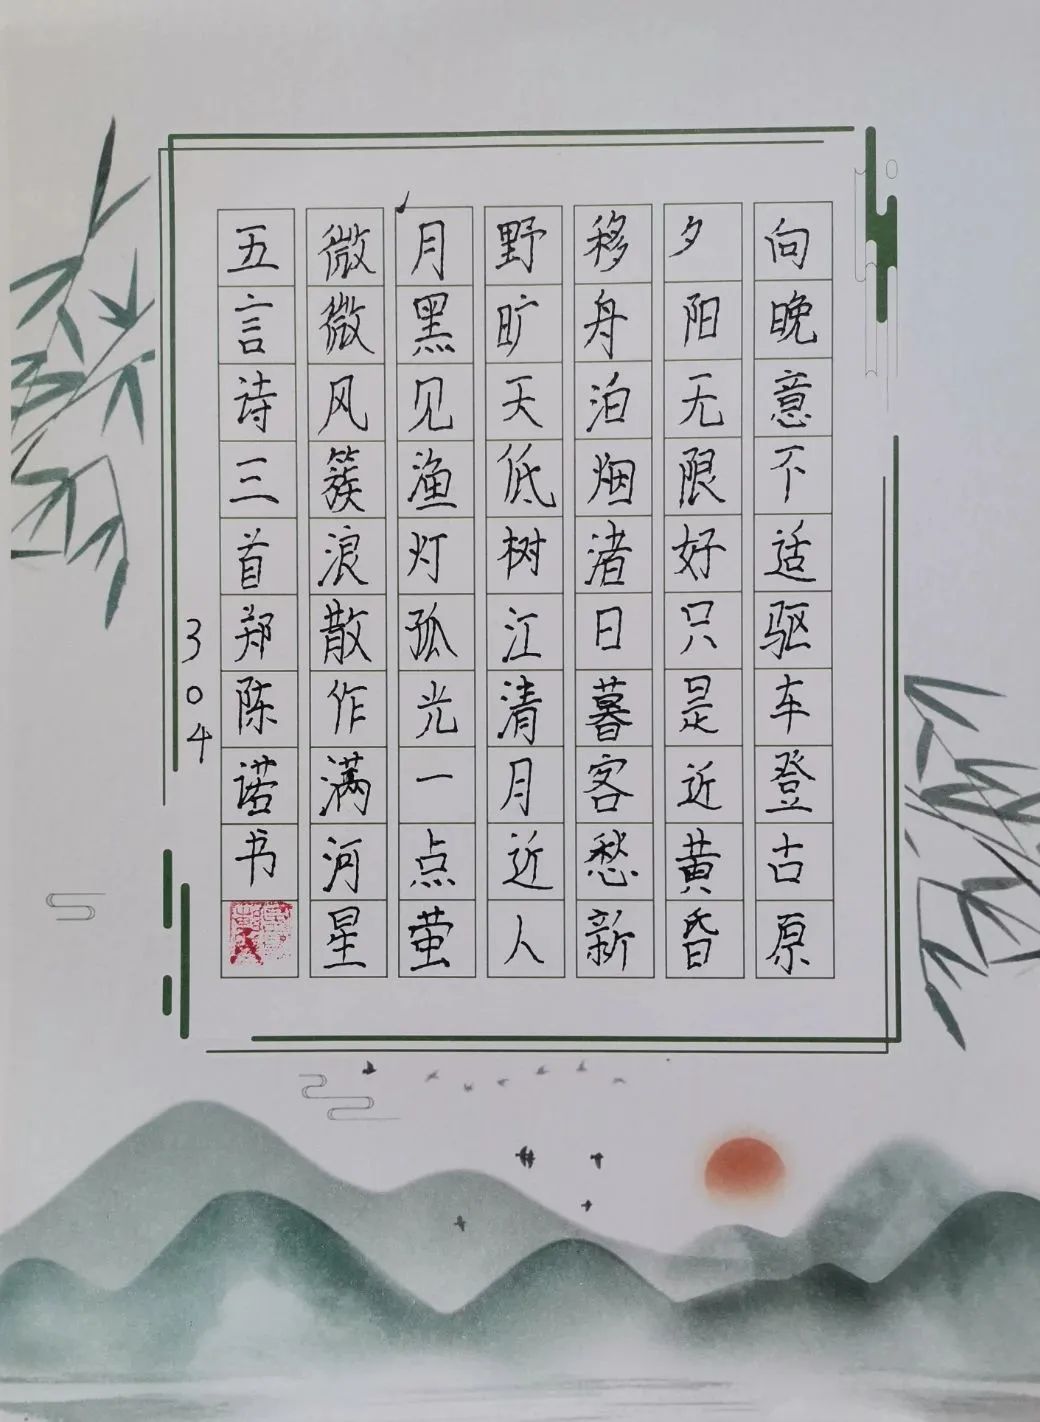 向晚意不适驱车登古原
夕阳无限好只是近黄昏
移舟泊烟渚日暮客愁新
野旷天低树江清月近人
月黑见渔灯孤光一点萤
微微风簇浪散作满河星
五言诗三首郑陈诺书
304